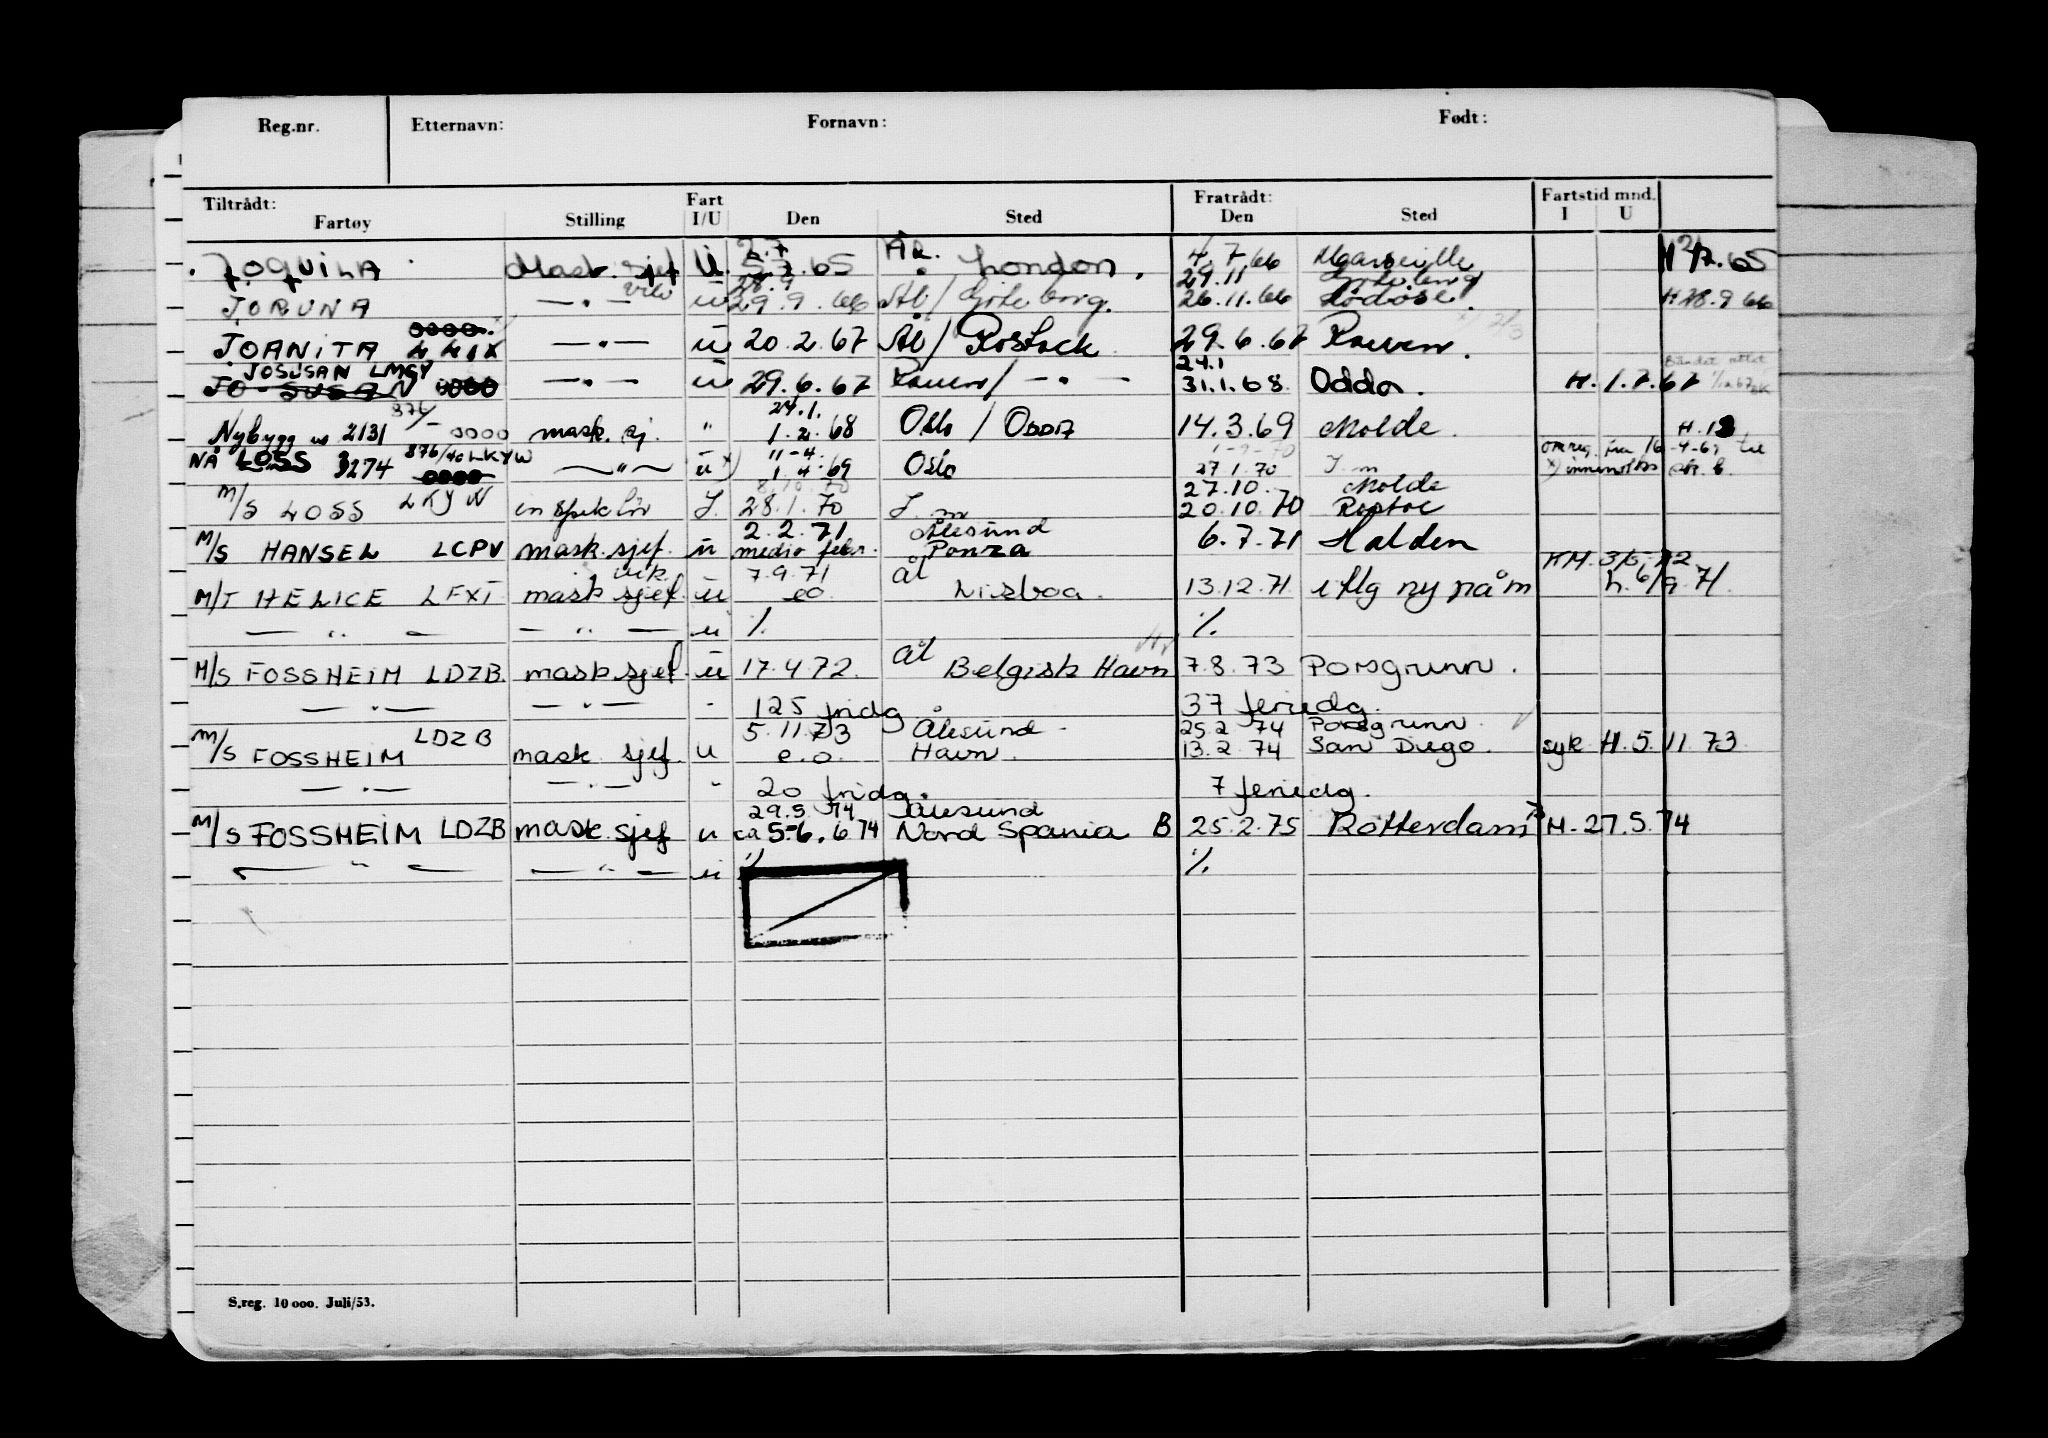 Reg.nr. Etternavn: Fornavn: Født:
Tiltrådt: Fart Fratrådt: Fartstid mnd.
Fartøy Stilling I/U Den Sted Den Sted I U
JOQUILA Mask. sjef U. 65 London. 4.7.66 Marseille
28.9 29.11 Göteborg
JORUNA — " — u 29.9.66 Ål/Göteborg. 26.11.66 H 28.9 66
JOANITA — " — u 20.2.67 Ål/Rostock 29.6.67 Rouen.
JOSUSAN LMGY 24.1
JO-SUSAN — " — u 29.6.67 Rouen/ — " — 31.1.68. Odda. H. 1.7.67
876/- 24.1.
Nybygg nr 2131 0000 mask. sj. " 1.2.68 Oslo / Odda 14.3.69 Molde.
876/40 LKYW 11-4- 1-9-70 omreg. fra 16-4-69 til
NÅ LOSS 3274 — " — u x) 1.4.69 Oslo 27.1.70 I m x) innenriks
8.10.70 27.10. Molde
M/S LOSS LKYW inspektør I. 28.1.70 I. m 20.10.70
2.2.71 Ålesund
M/S HANSEL LCPV mask. sjef. u medio febr. Ponza 6.7.71 Halden
vik. 7.9.71 ål KM. 3/5-72
M/T HELICE LFXT mask sjef. u eo Lisboa. 13.12.71 iflg ny påm h. 6/9.71.
— " — — " — u %. %.
M/S FOSSHEIM LDZB. mask sjef. u 17.4.72. ål Belgisk Havn 7.8.73 Porsgrunn.
— " — — " — " 125 fridg. 37 feriedg.
LDZB 5.11.73 Ålesund 25.2 74 Porsgrunn
M/S FOSSHEIM mask sjef. u e.o. Havn. 13.2.74 San Diego. syk H. 5.11 73
— " — — " — " 20 fridg. 7 feriedg.
29.5.74 Ålesund
M/S FOSSHEIM LDZB mask sjef u ca 5-6.6.74 Nord Spania B 25.2.75 Rotterdam H-27.5.74
— " — — " — u %. %.
S.reg. 10 000. Juli/53.